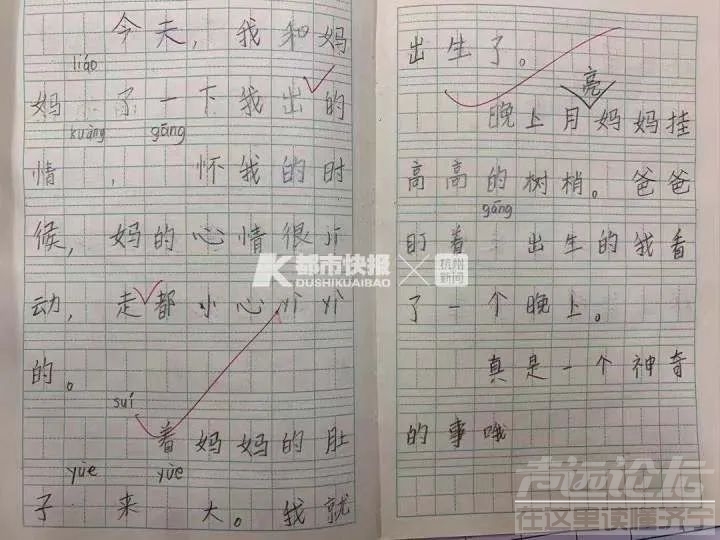 今天，我和妈
liáo
妈 了一下我出的
kuàng gāng
情 ， 怀我的时
候，妈的心情很
动，走都小心
的。
suí
着妈妈的肚
yüe yüè
子 来 大。我就
出生了。
亮
晚上月妈妈挂
高高的树梢。爸爸
gāng
盯着 出生的我看
了一个晚上。
真是一个神奇
的事哦
都市快报
DUSHIKUAIBAO
杭州
新闻
在这里读懂济宁